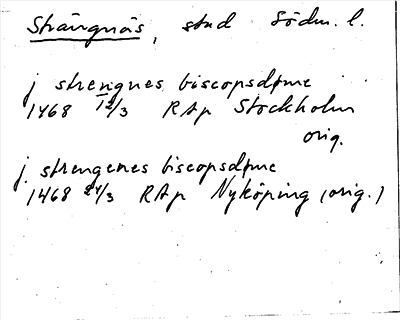 Strängnäs, stad Södm. l.
j strengnes biscopsdøme
1468 12/3 RAp Stockholm
orig.
j strengenes biscopsdøme
1468 24/3 RAp Nyköping (orig.)